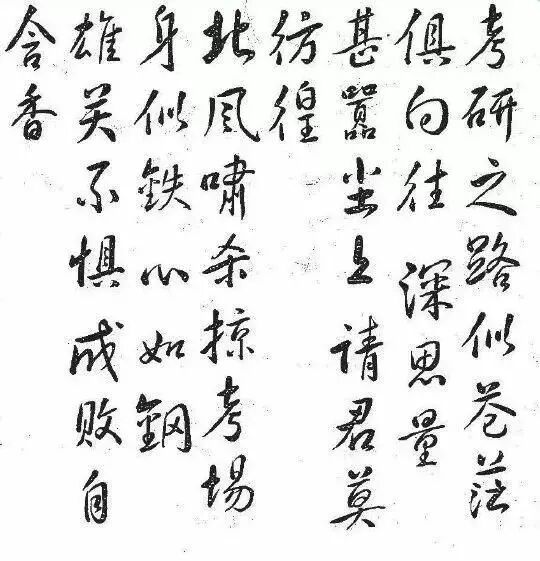 考研之路似苍茫
俱向往 深思量
甚嚣尘上請君莫
彷徨
北风啸杀掠考場
身似鉄心如鋼
雄英不惧成败自
含香